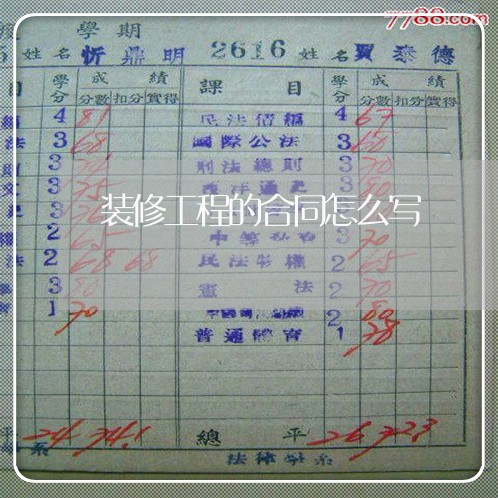 7788.com
學期
姓名 忻鼎明 2616 姓名 賈泰德
目 學分 成績 課目 學分 成績
分數 扣分 實得 分數 扣分 實得
4 81 民法債編 4 67
法 3 68 國際公法 3 60
3 刑法總則 3 70
3 75 西洋通史 3 80
裝修工程的合同怎么写
2 65 中等私有 3 70
法 2 68 68 民法物權 2 65
3 80 憲法 2 70
1 70 2 80
普通體育 1 78
平 24 74.1 總平 26 72.3
系 法律學系